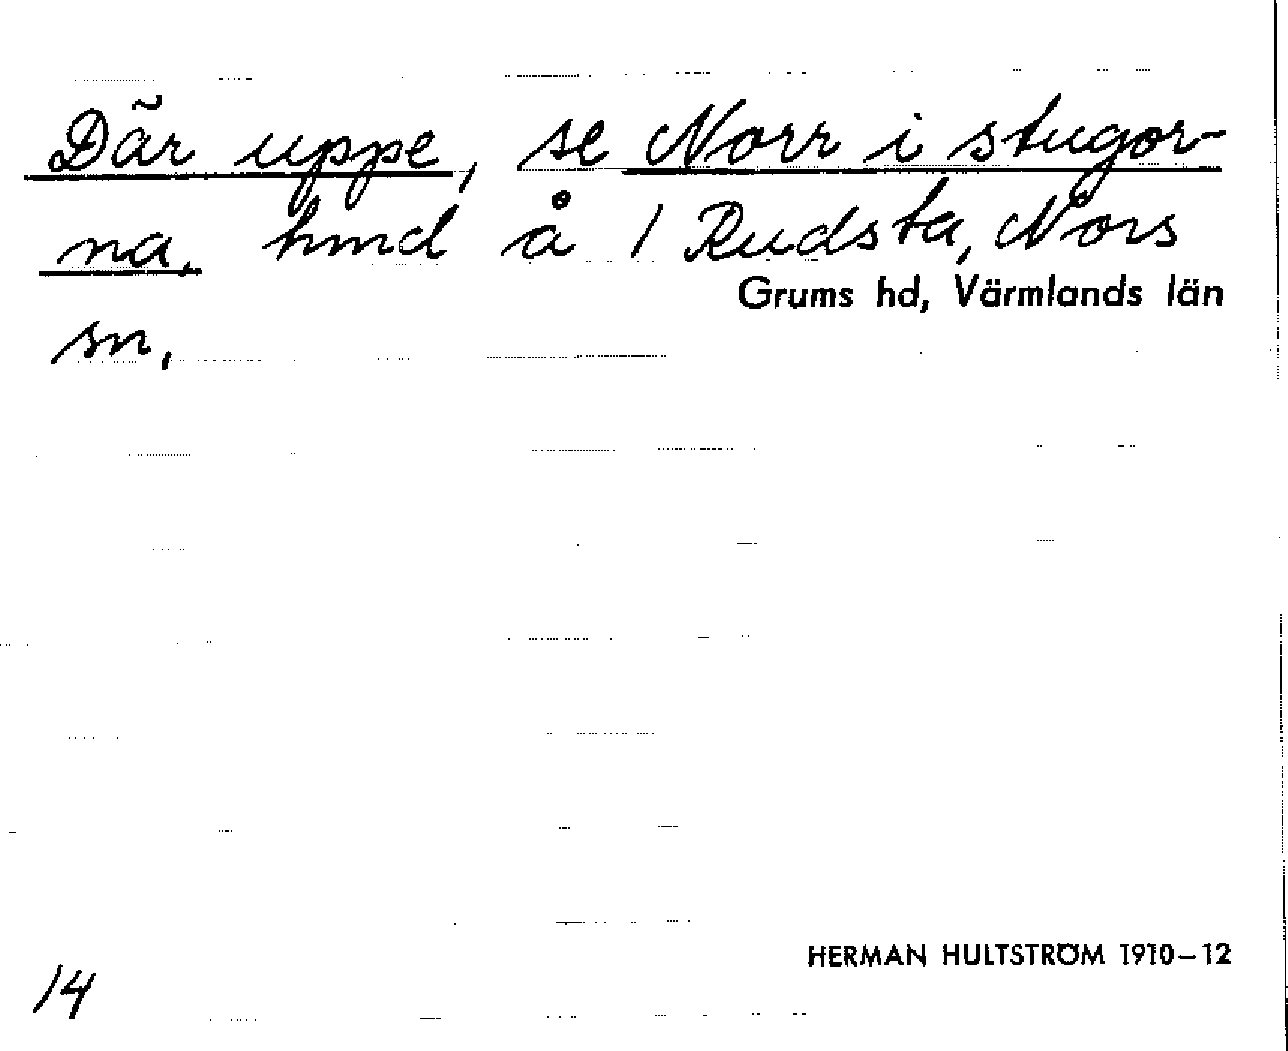 Där uppe, se Norr i stugor-
na, hmd å 1 Rudsta, Nors
Grums hd, Värmlands län
sn,
HERMAN HULTSTRÖM 1910–12
14